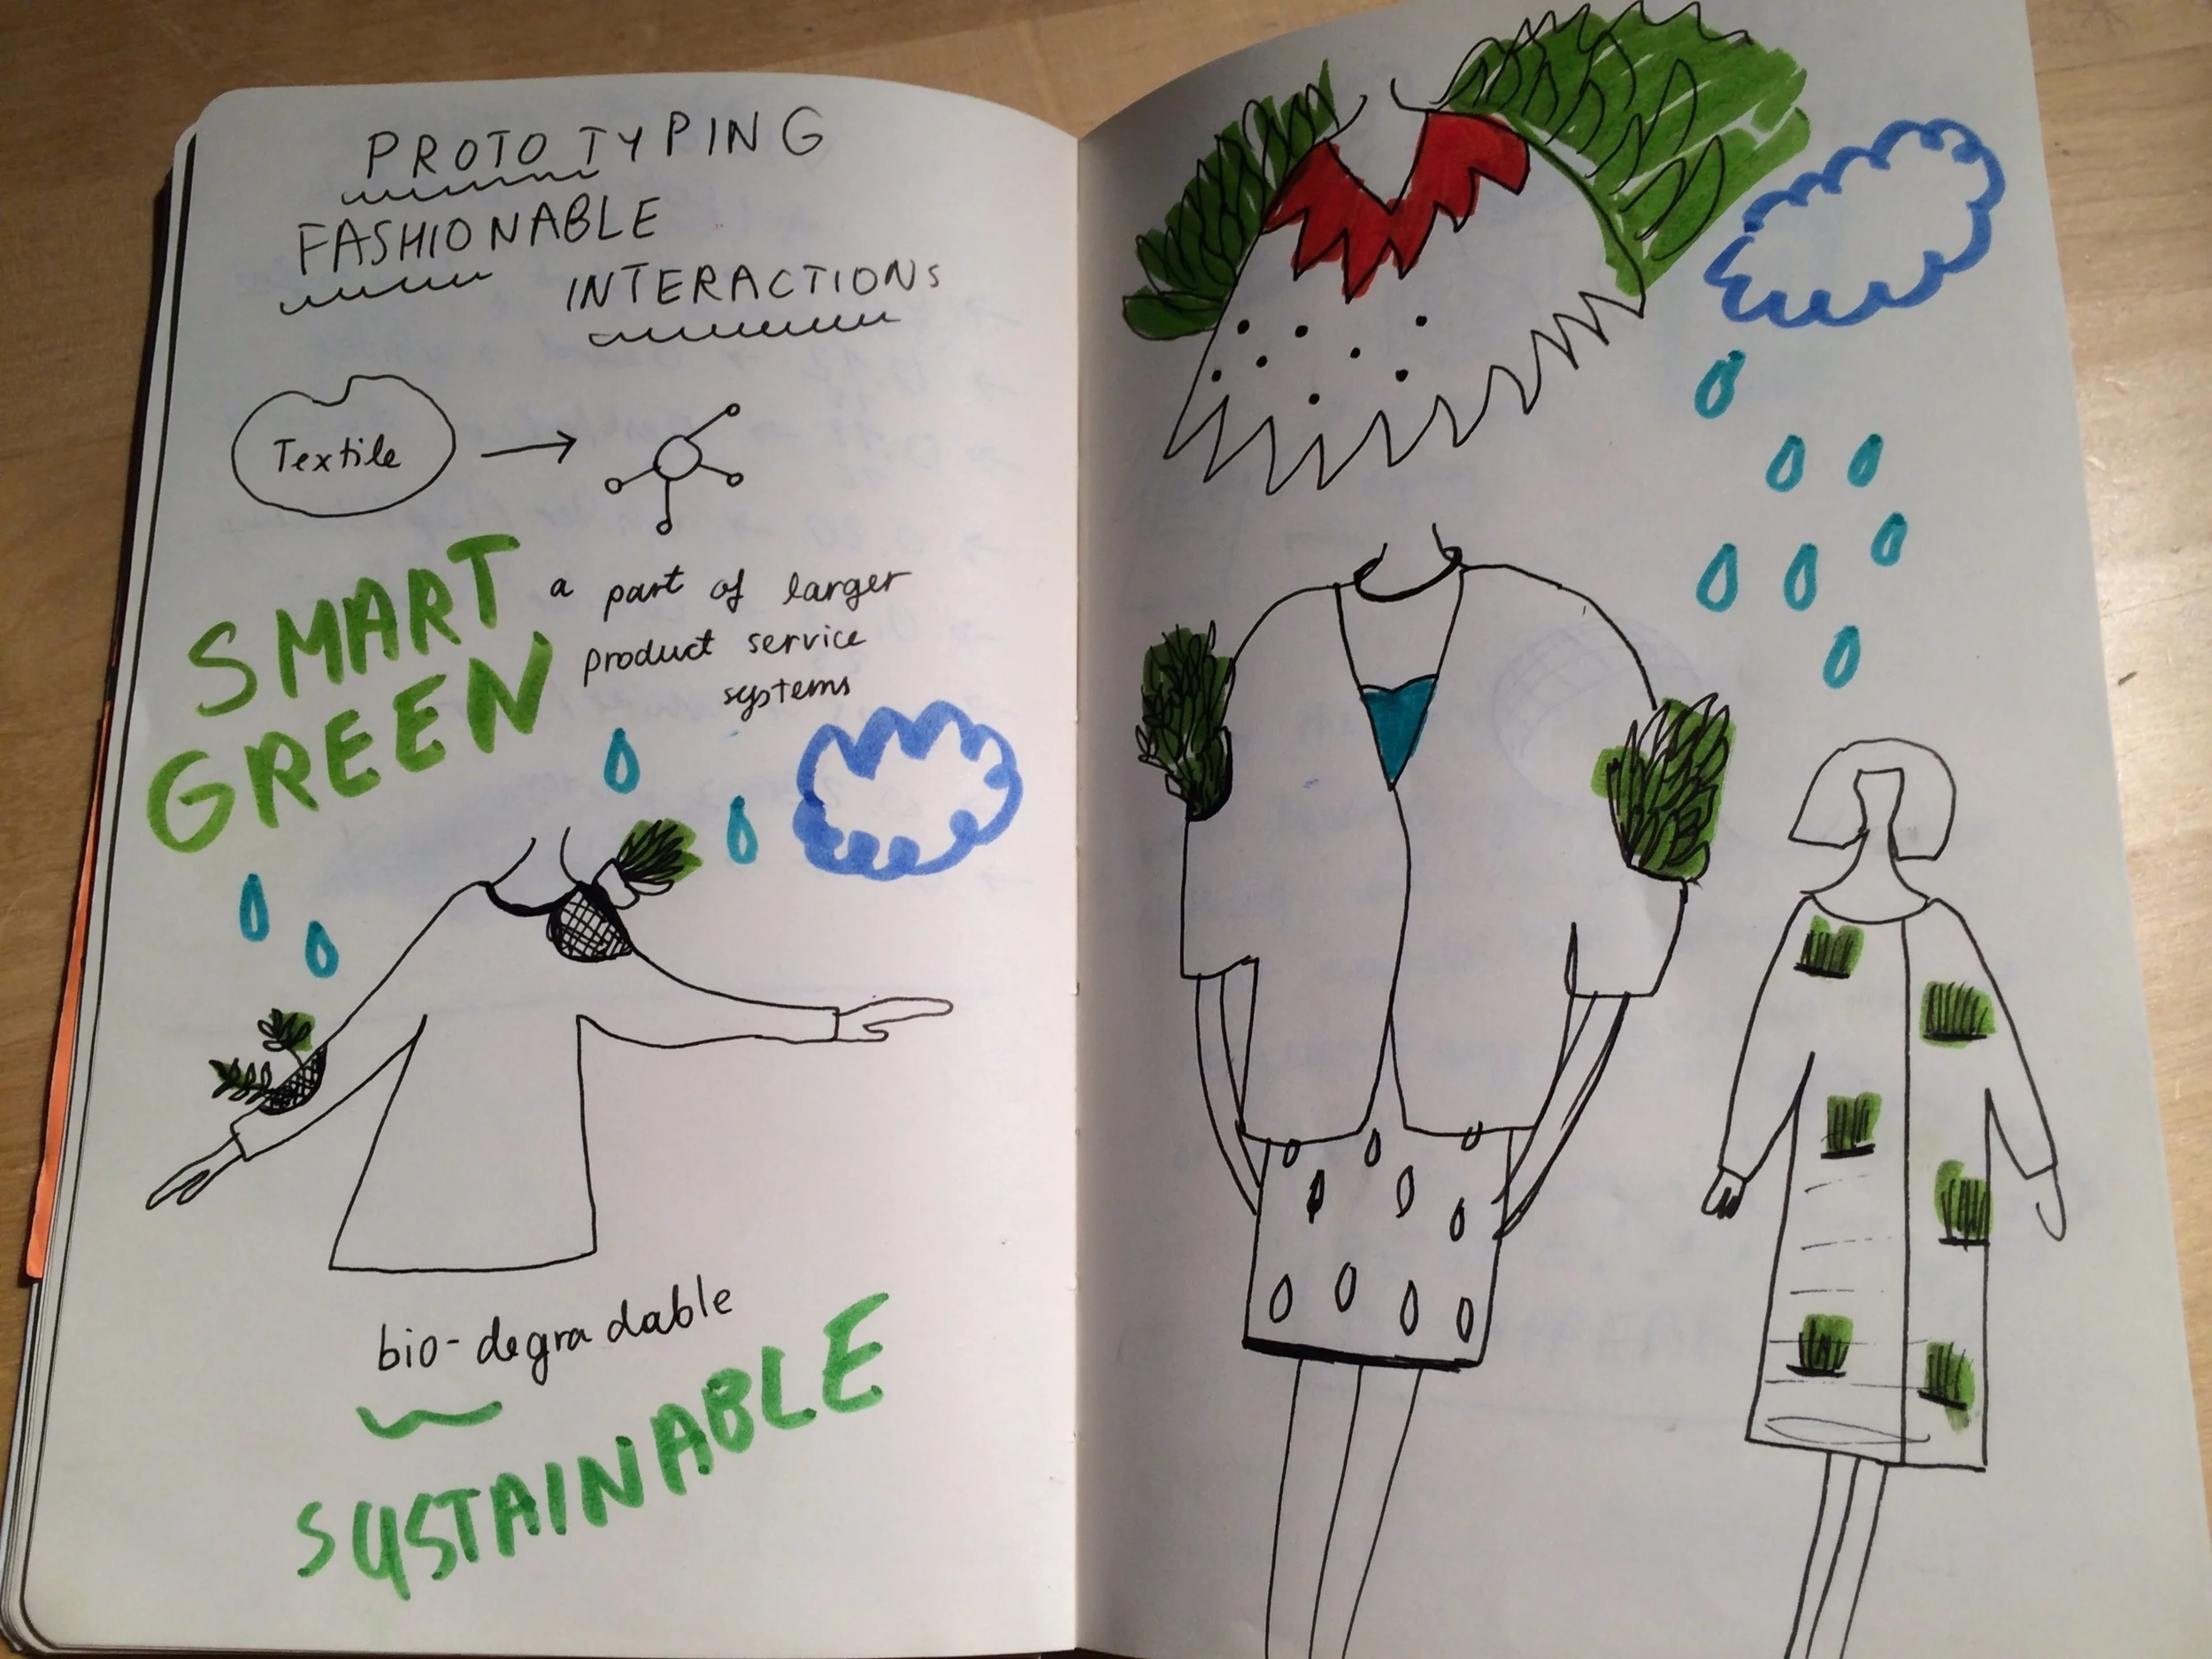 PROTOTYPING
FASHIONABLE
INTERACTIONs
Textile
SMART
GREEN
a part of larger
product service
systems
bio-degradable
SUSTAINABLE